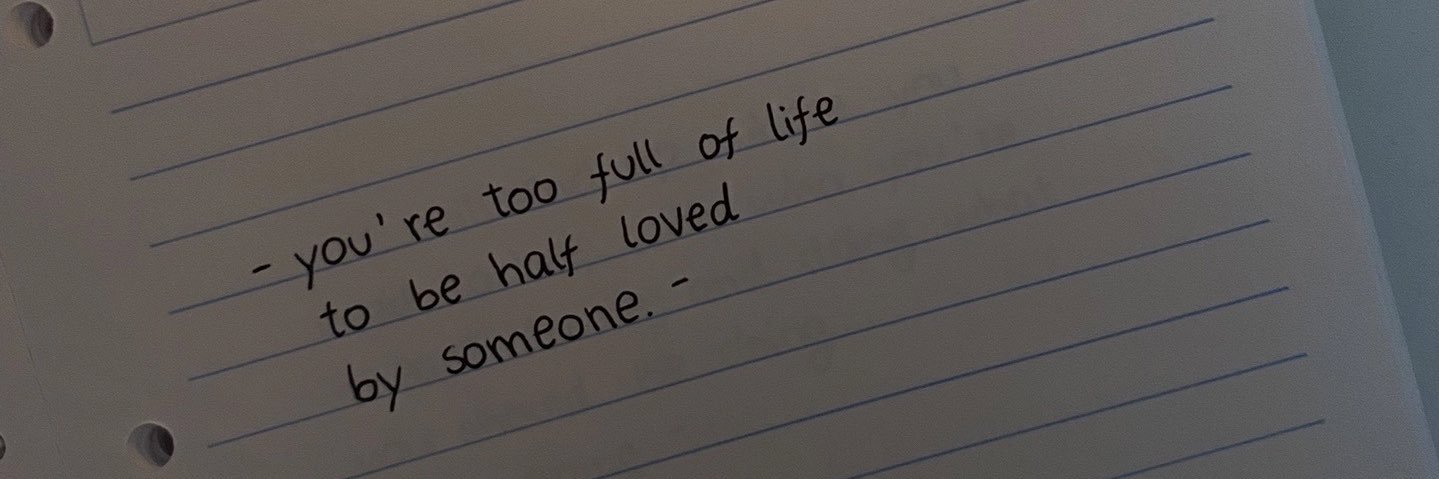 - you're too full of life
to be half loved
by someone. -